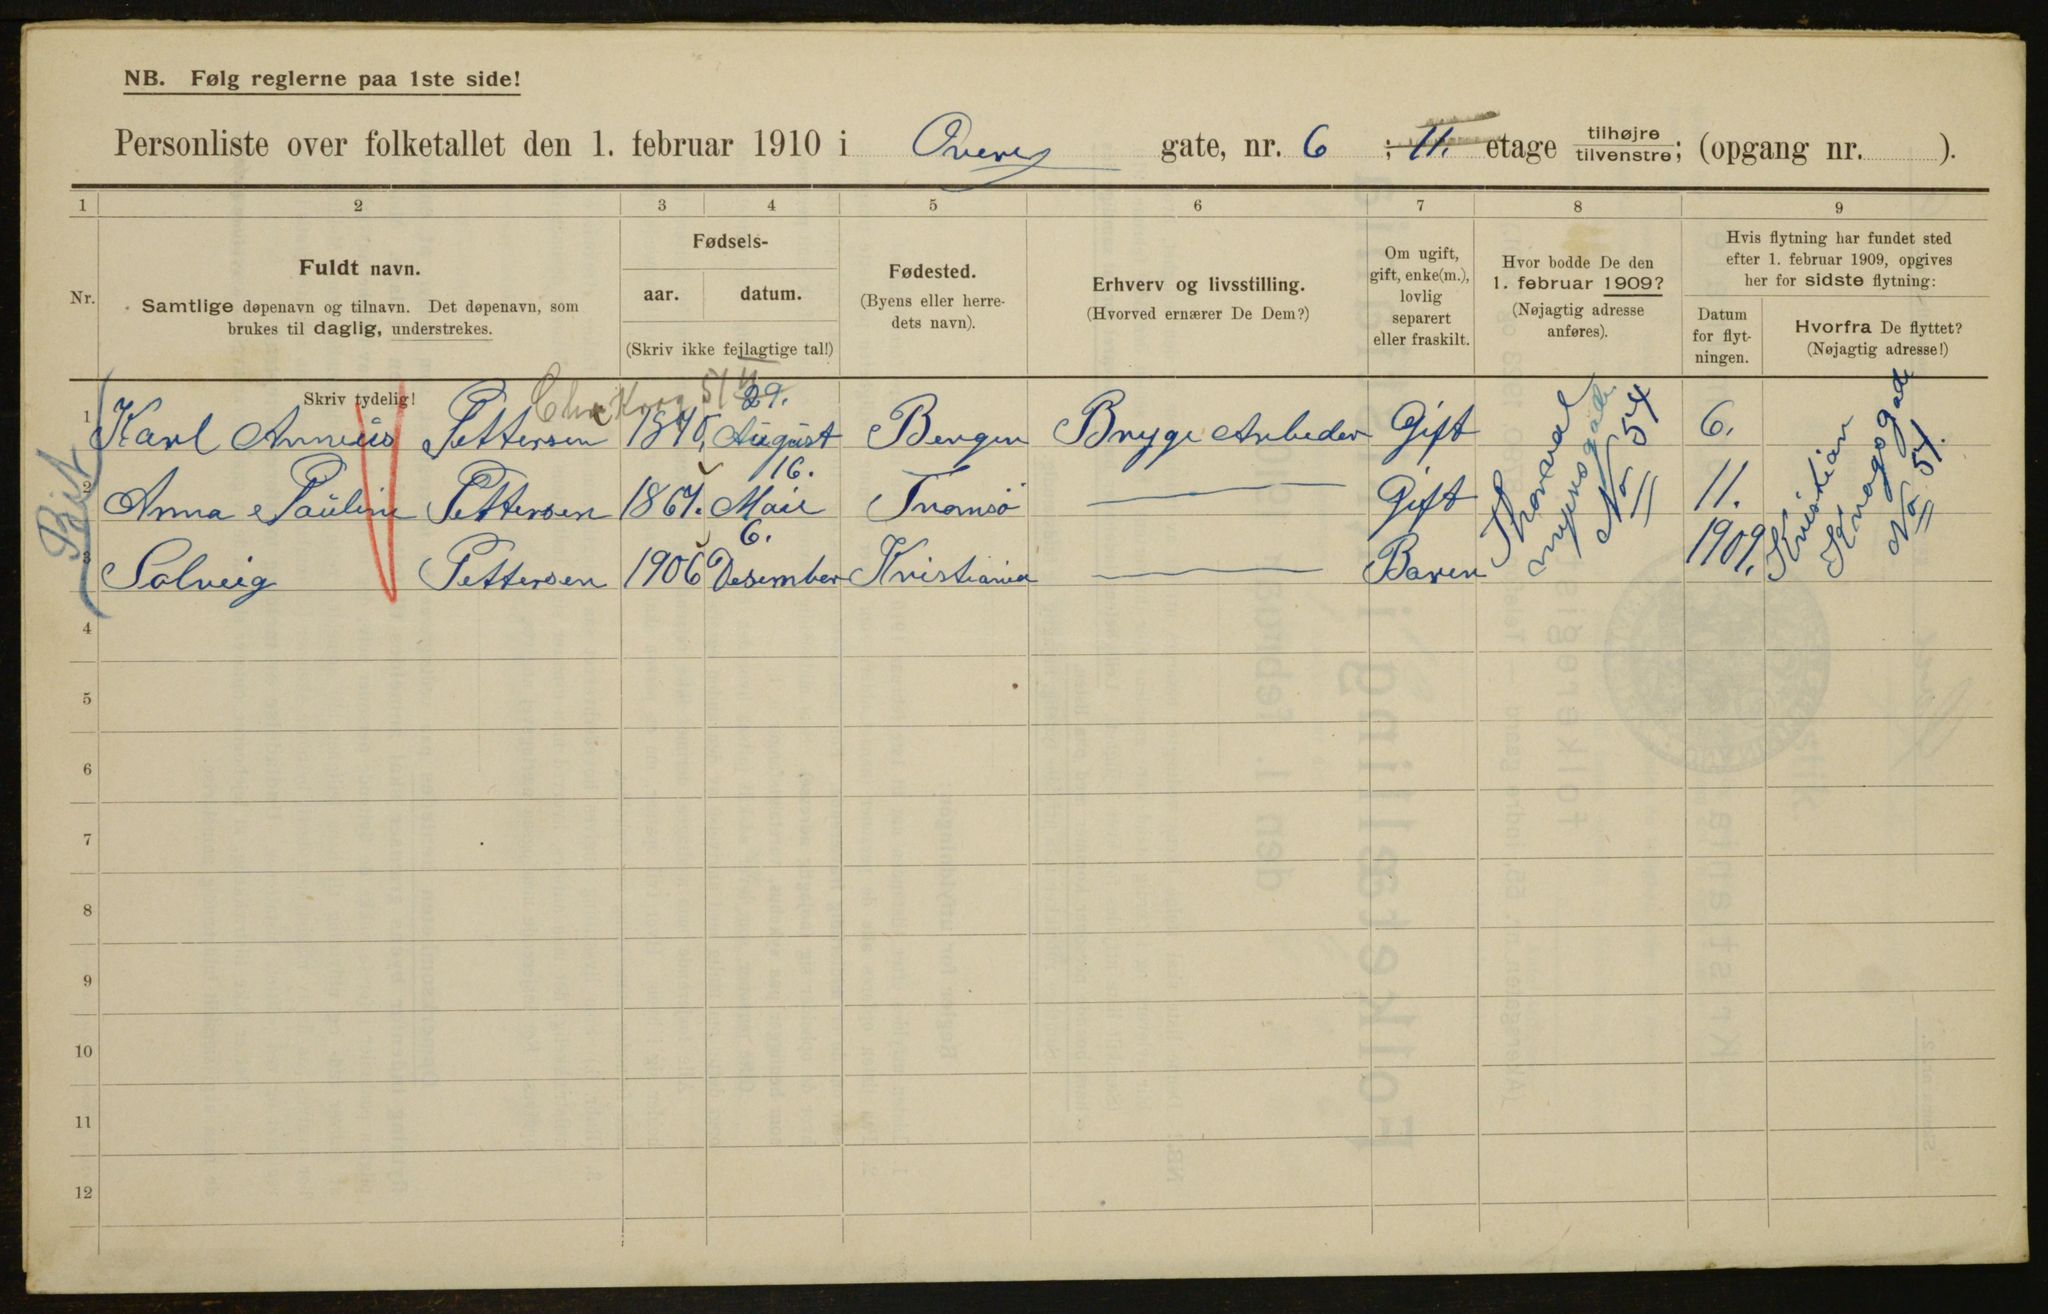 NB. Følg reglerne paa 1ste side!
Personliste over folketallet den 1. februar 1910 i Övere gate, nr. 6 ; 11. etage tilhøjre tilvenstre; (opgang nr. ).
1 2 3 4 5 6 7 8 9
Nr.
Fuldt navn.
Samtlige døpenavn og tilnavn. Det døpenavn, som
brukes til daglig, understrekes.
Skriv tydelig!
Fødsels-
aar. datum.
(Skriv ikke fejlagtige tal!)
Fødested.
(Byens eller herre-
dets navn).
Erhverv og livsstilling.
(Hvorved ernærer De Dem?)
Om ugift,
gift, enke(m.),
lovlig
separert
eller fraskilt.
Hvor bodde De den
1. februar 1909?
(Nøjagtig adresse
anføres).
Hvis flytning har fundet sted
efter 1. februar 1909, opgives
her for sidste flytning:
Datum
for flyt-
ningen.
Hvorfra De flyttet?
(Nøjagtig adresse!)
Chr Krog 51
1 Karl Pettersen 29. August Bergen Brygge Arbeder Gift
2 Anna Pauline Pettersen 1867. 16. Mai Tromsö Gift
3 Solveig Pettersen 1906 6. Desember Kristiania Baren
Thorval
myersgade
No 54
6.
11.
1909.
Kristian
Krogsgade
No 51.
4
5
6
7
8
9
10
11
12